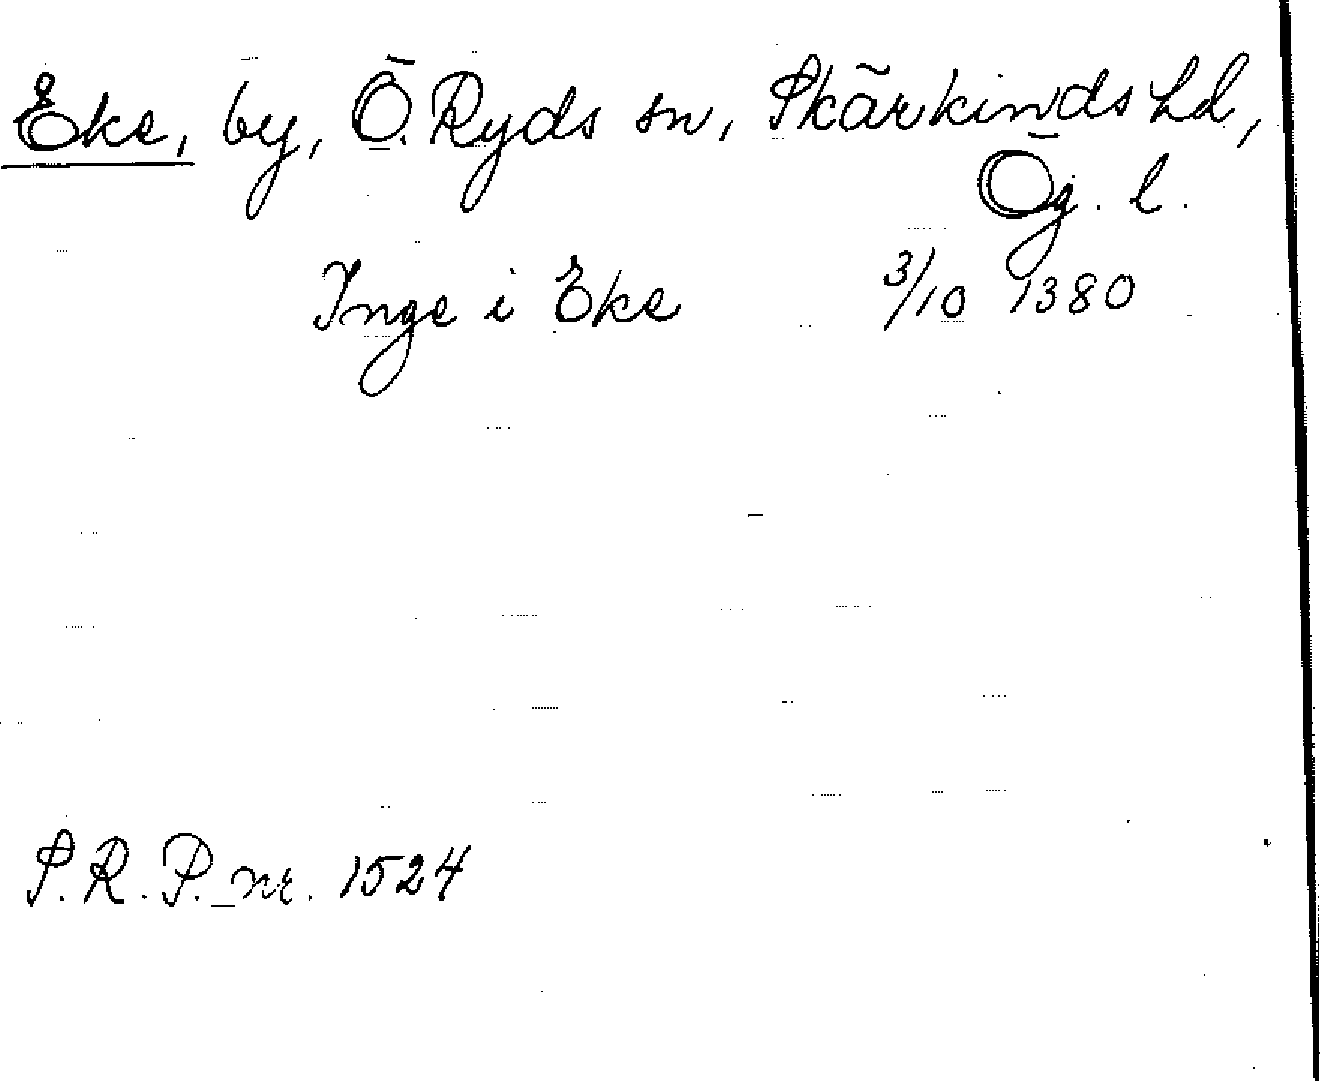 Eke, by, Ö. Ryds sn, Skärkinds hd,
Ög. l.
Inge i Eke 3/10 1380
S. R. P. nr. 1524